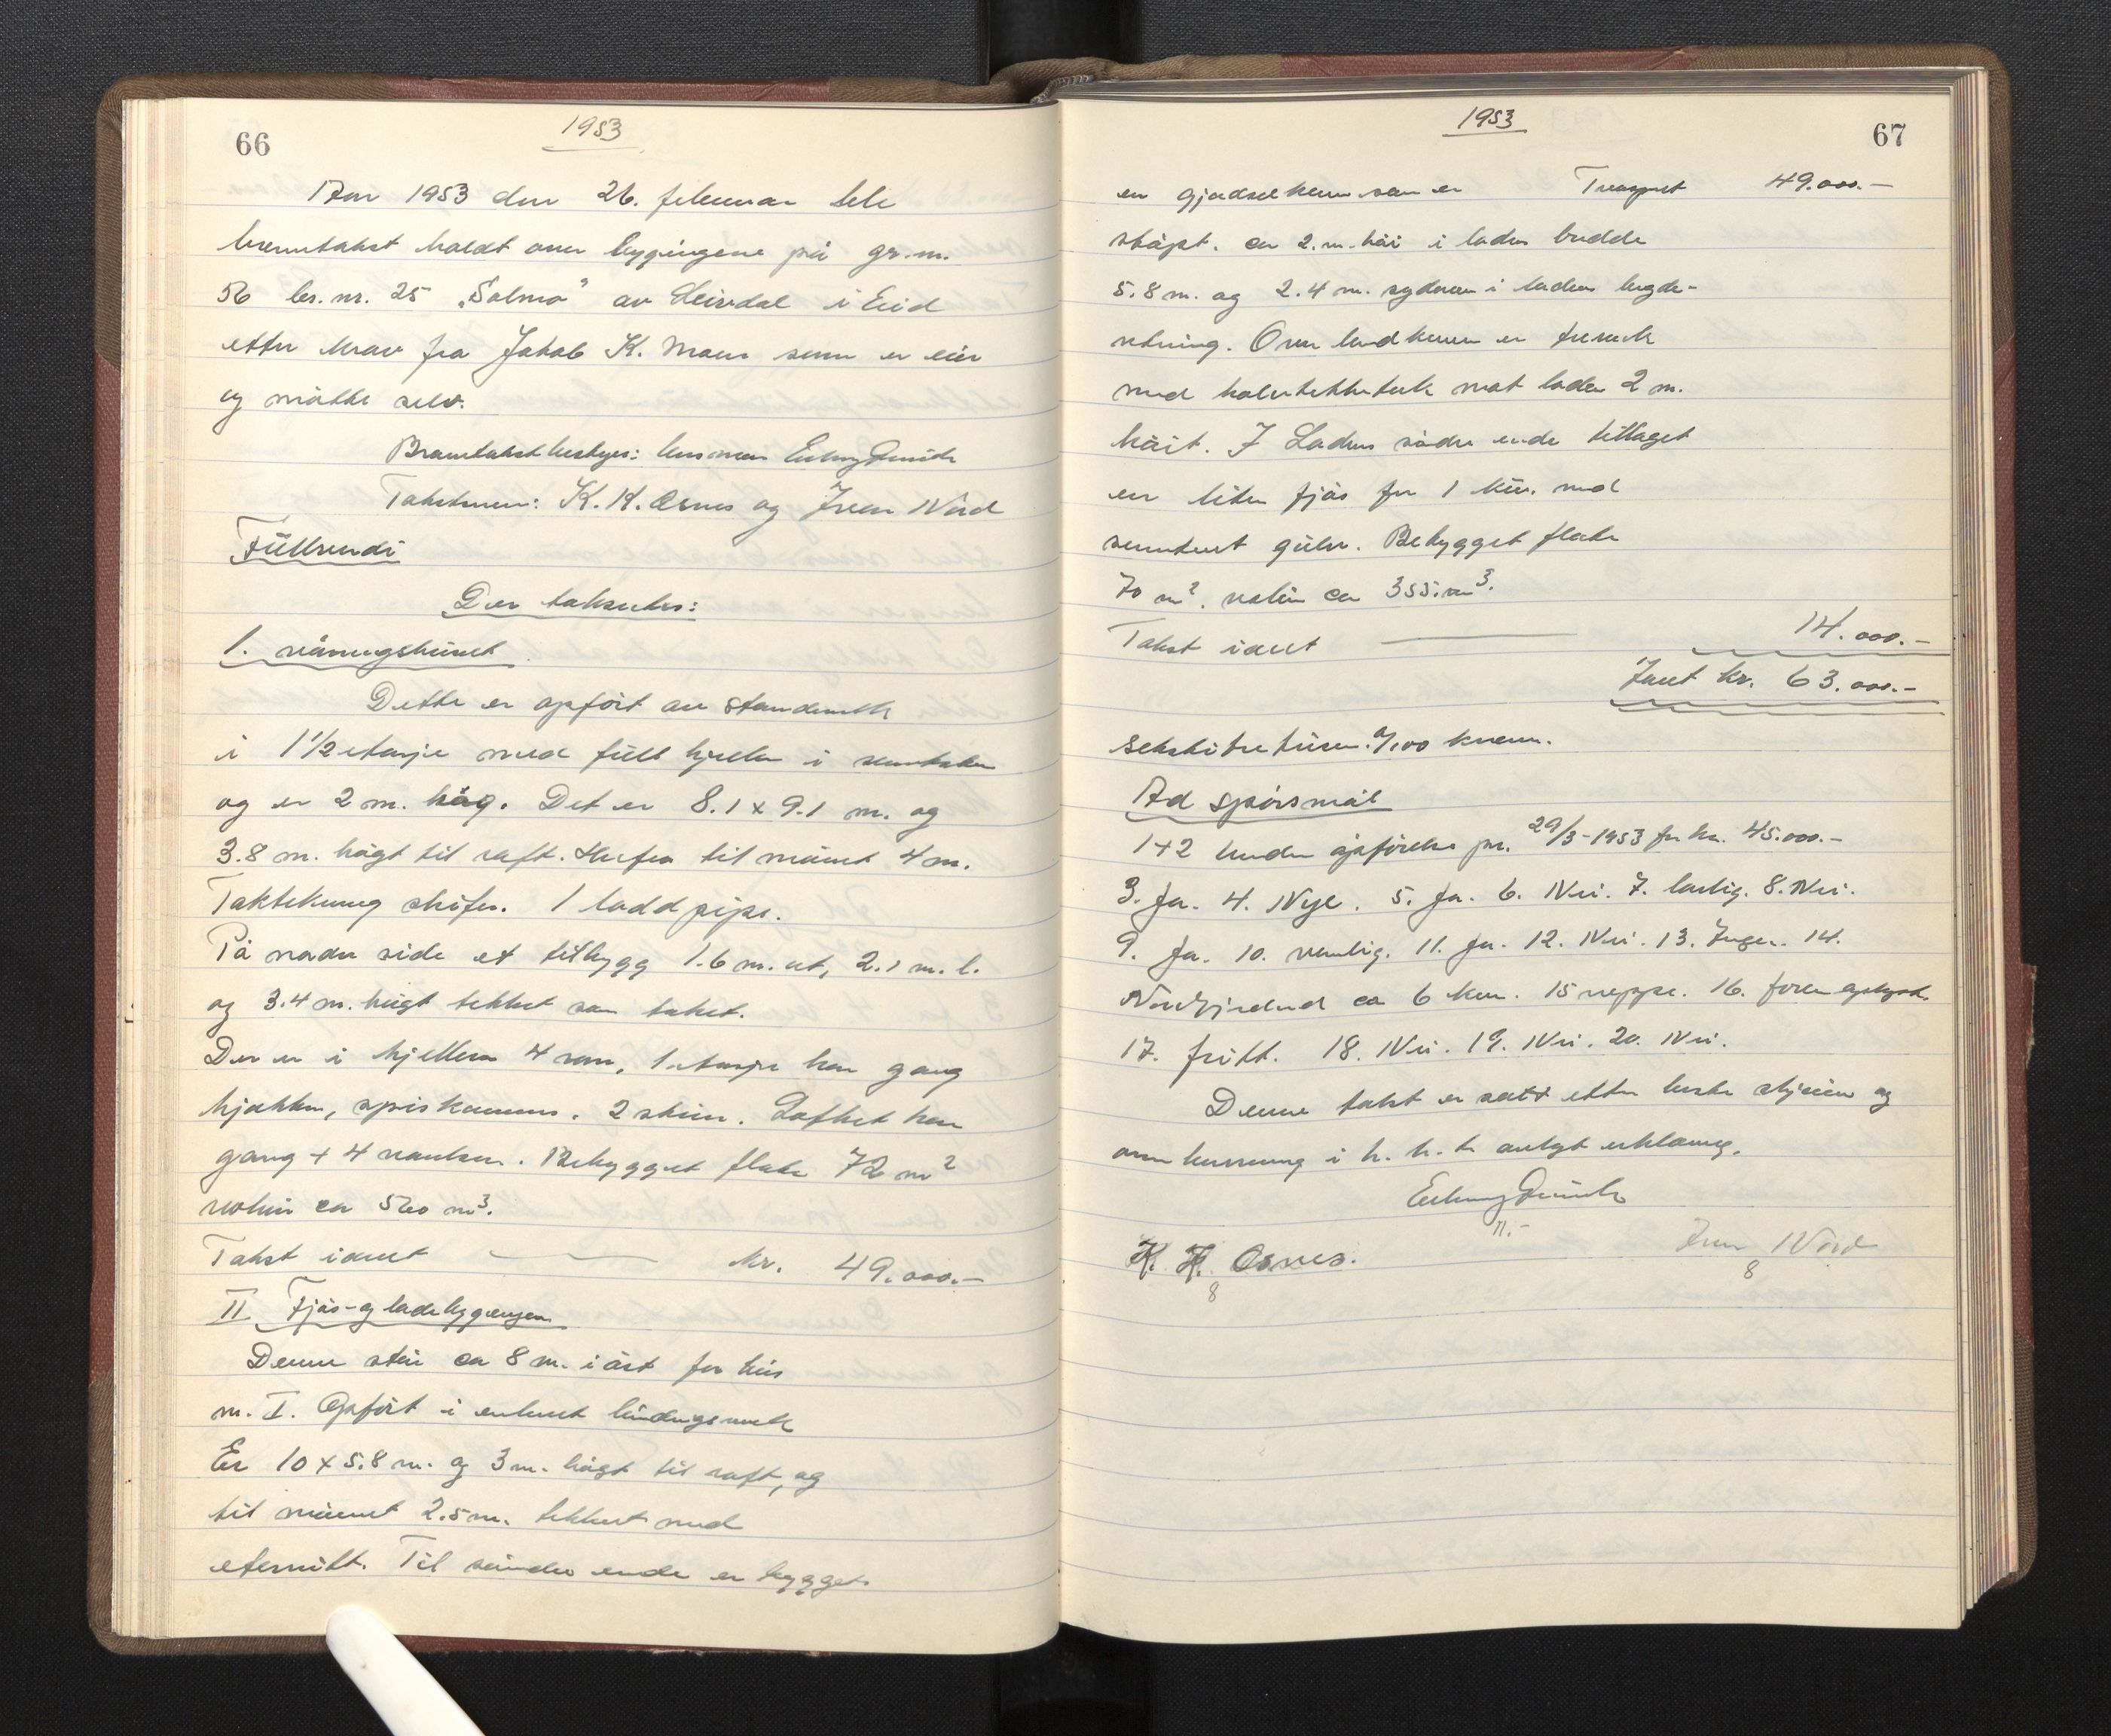 66
1953
År 1953 den 26. februar ble
branntakst holdt over bygingene på gr.nr.
56 br.nr. 25 "Solmo" av Leivdal i Eid
etter krav fra Jakob K. Maurs som er eier
og møtte selv.
Branntakstbestyrer: lensmann
Takstmenn: K. K. Osnes og Ivar Nord
Fullrende
Der taksertes:
1. våningshuset
Dette er opført av standerverk
i 1 1/2 etasje med full kjeller i
og er 2 m. høg. Det er 8.1 x 9.1 m. og
3.8 m. høgt til raft. Herfra til mønet 4 m.
Taktekking skifer. 1 lodd pipe.
På nordre side et tilbygg 1.6 m. ut, 2.1 m. l.
og 3.4 m. høgt tekket som taket.
Der er i kjelleren 4 rom, 1. etasje har gang
kjøkken, spiskammers. 2 stuer. Loftet har
gang + 4 værelser. Bebygget flate 72 m²
volum ca 520 m³.
Takst i alt kr. 49.000.-
II Fjøs- og ladebyggingen
Denne står ca 8 m. i øst for hus
nr. I. Opført i enkelt bindingsverk
Er 10 x 5.8 m. og 3 m. høgt til raft, og
til mønet 2.5 m. tekket med
eternitt. Til søndre ende er bygget
67
1953
en gjødselkum som er Transport 49.000.-
støpt. ca 2. m. høi i ladens bredde
5.8 m. og 2.4 m. sydover i ladens lengde-
retning. Over landkummen er treverk
med halvtekketak mot laden 2 m.
høit. I Ladens søndre ende tillaget
en liten fjøs for 1 kur. med
sementert gulv. Bebygget flate
70 m². volum ca 355. m³.
Takst i alt 14.000.-
I alt kr. 63.000.-
sekstitretusen 0/100 kroner.
Ad spørsmål
1+2 Under opførelse pr. 29/3-1953 for kr. 45.000.-
3. Ja. 4. Nye. 5. Ja. 6. Nei. 7. lovlig. 8. Nei.
9. Ja. 10. vanlig. 11. Ja. 12. Nei. 13. Ingen. 14.
Nordfjordeid ca 6 km. 15 neppe. 16.
17. fritt. 18. Nei. 19. Nei. 20. Nei.
Denne takst er satt etter beste skjønn og
overbevisning i h. h. t. avlagt erklæring.
K. K. Osnes. Ivar Nord
8 8